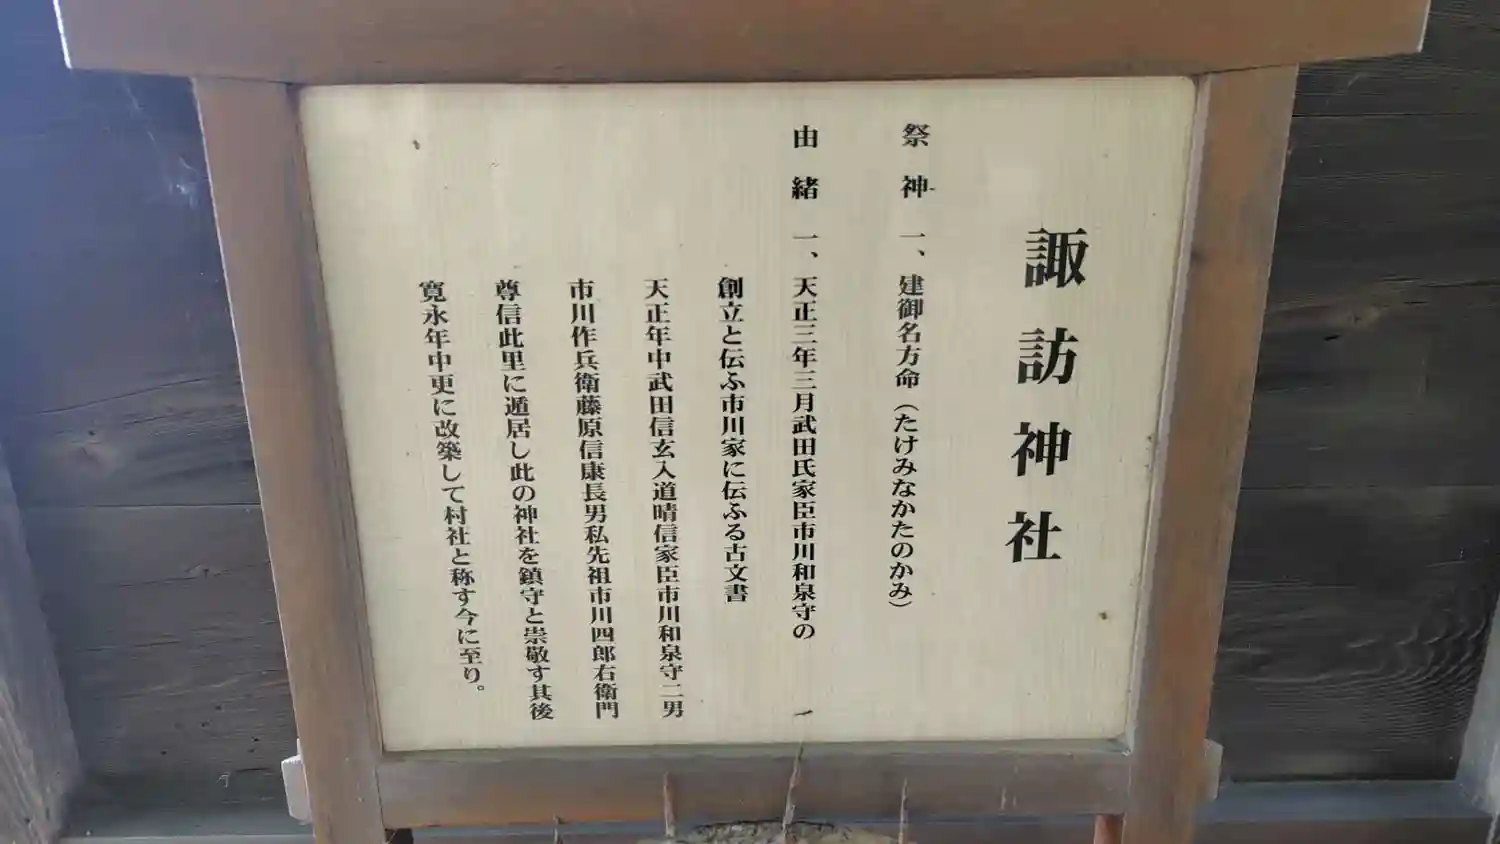 諏訪神社
祭神 一、建御名方命(たけみなかたのかみ)
由緒 一、天正三年三月武田氏家臣市川和泉守の
創立と伝ふ市川家に伝ふる古文書
天正年中武田信玄入道晴信家臣市川和泉守二男
市川作兵衛藤原信康長男私先祖市川四郎右衛門
尊信此里に遁居し此の神社を鎮守と崇敬す其後
寛永年中更に改築して村社と称す今に至り。